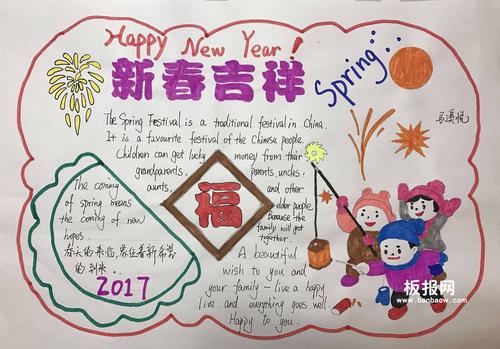 Happy New Year!
新春吉祥
Spring
马溪悦
The Spring Festival is a traditional festival in China.
It is a favourite festival of the Chinese people.
Children can get lucky money from thier
grandparents, parents, uncles,
aunts, and other
elder people.
Because the
family will get
together.
福
The coming
of spring means
the coming of new
hopes.
春天的来临，象征着新希望
的到来.
2017
A beautiful
wish to you and
your family - live a happy
live and everything goes well
Happy to you.
板报网
www.banbaow.com